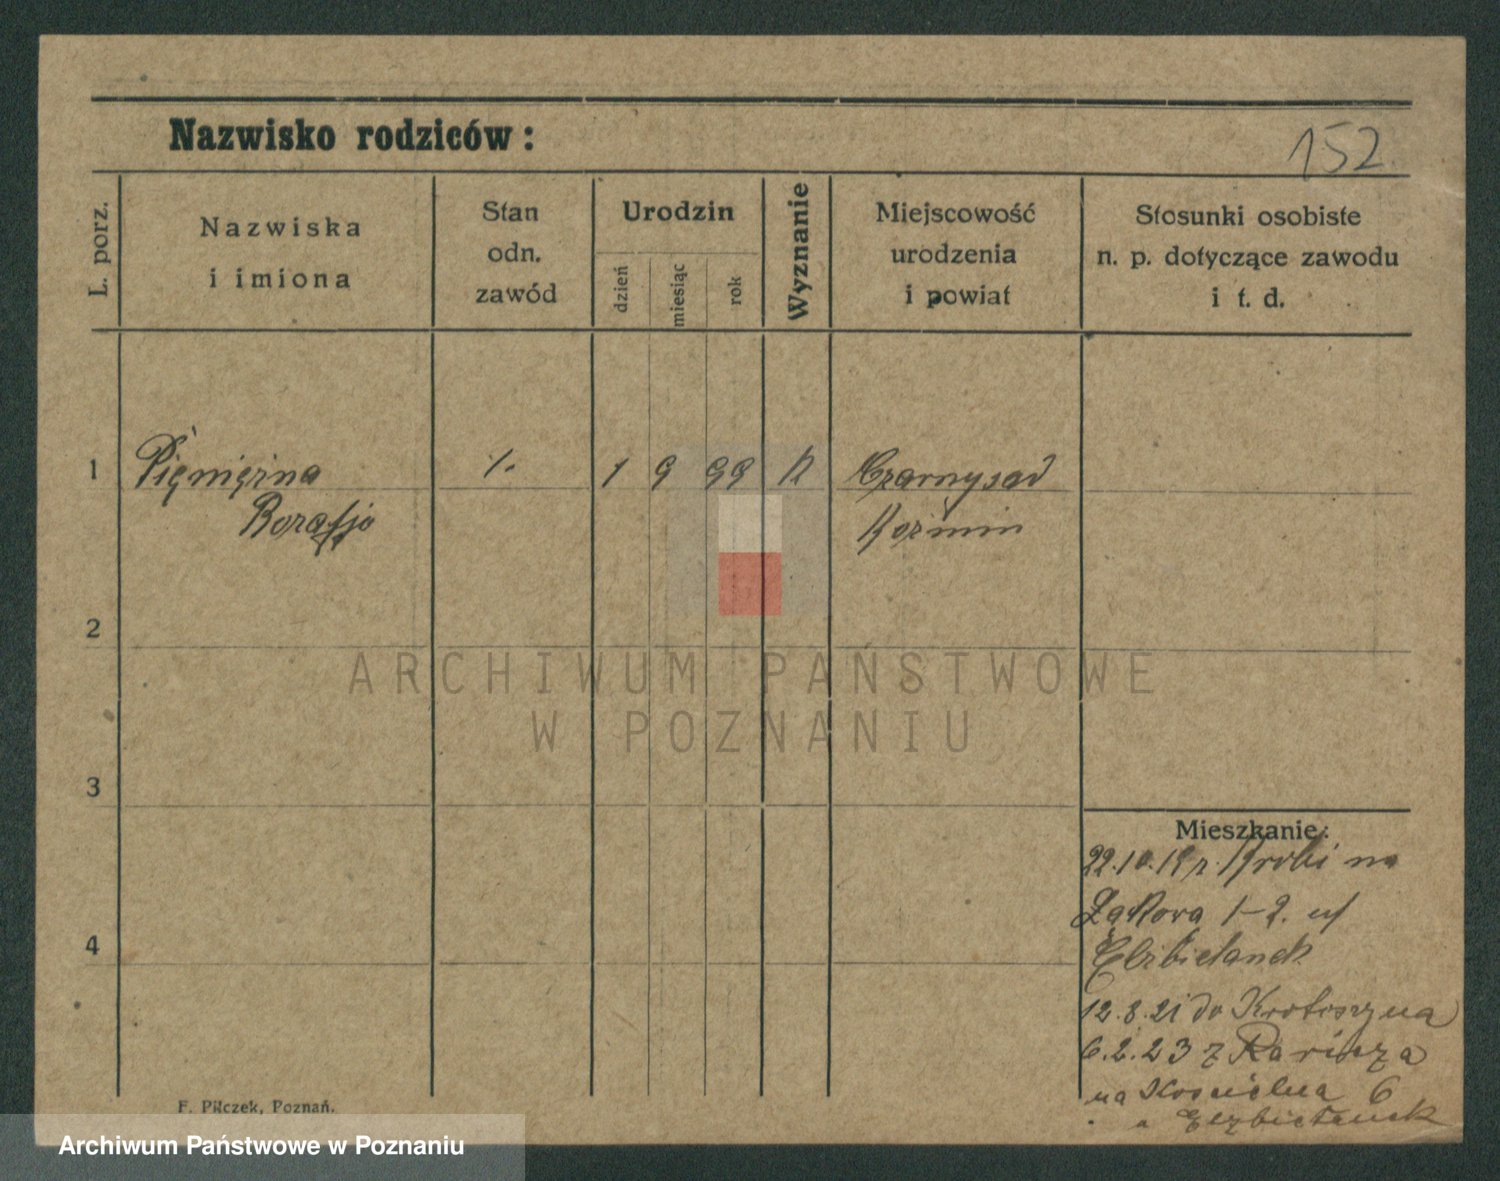 Nazwisko rodziców:
152
L. porz.
Nazwiska
i imiona
Stan
odn.
zawód
Urodzin
dzień
miesiąc
rok
Wyznanie
Miejscowość
urodzenia
i powiat
Stosunki osobiste
n. p. dotyczące zawodu
i t. d.
1 1 9 99 K Czarnysad
Kozmin
2
3
4
ARCHIWUM PAŃSTWOWE
W POZNANIU
Mieszkanie:
22.10.19 r. Krobi na
Łąkova 1-2. u
Elzbietanek
12.8.21 do Krotoszyna
6.2.23 z
na Kościelna 6
Elzbietanek
F. Pilczek, Poznań.
Archiwum Państwowe w Poznaniu